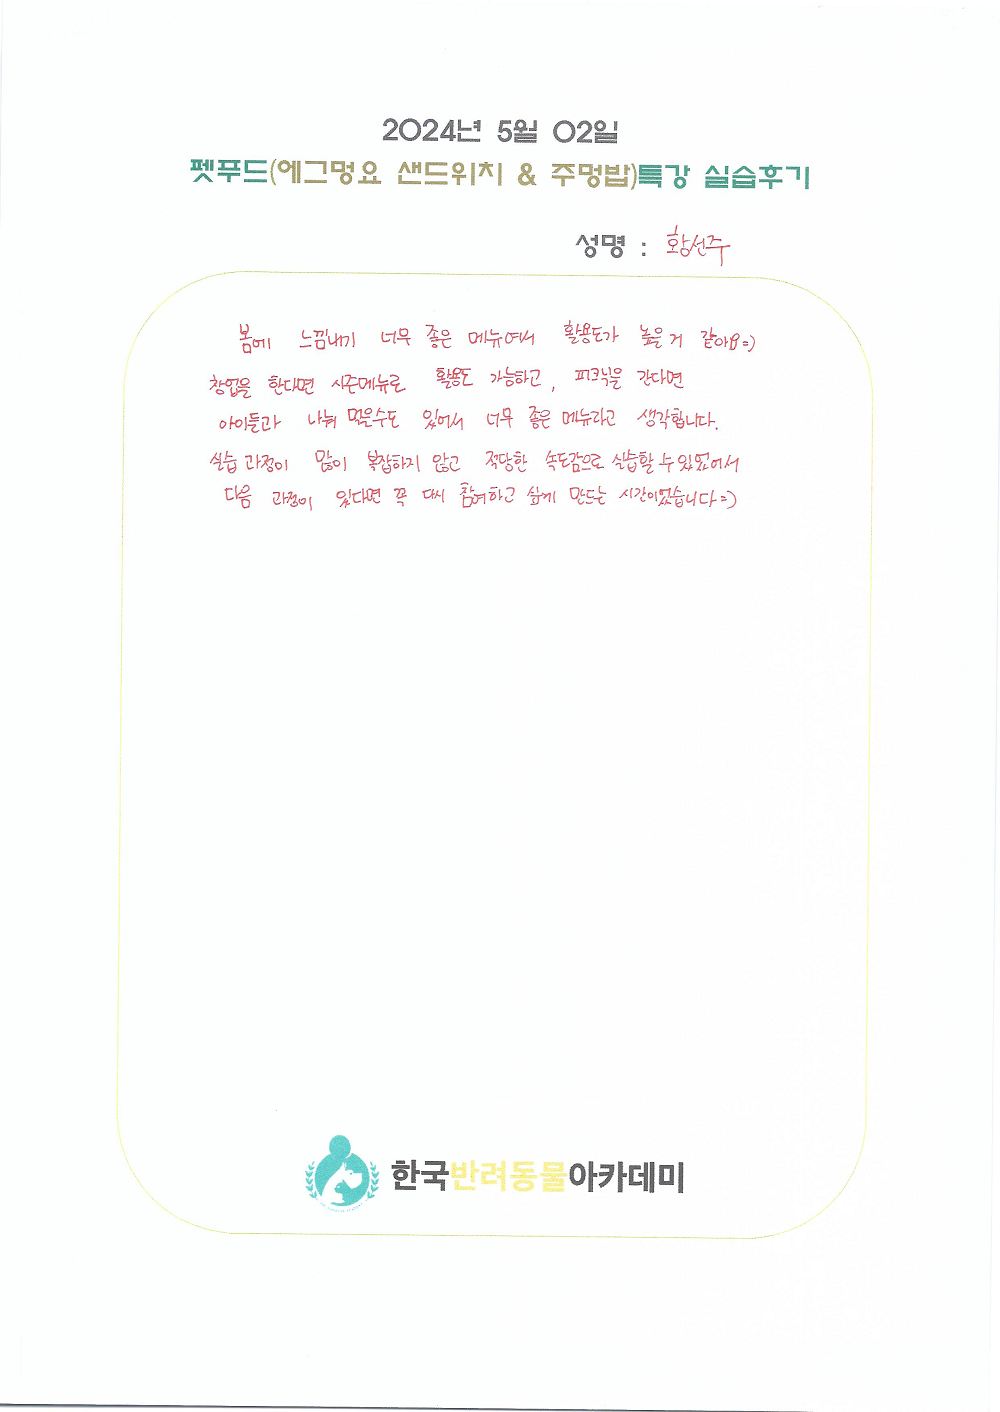 2024년 5월 02일
펫푸드(에그멍요 샌드위치 & 주멍밥)특강 실습후기
성명 : 황선주
봄에 느낌내기 너무 좋은 메뉴여서 활용도가 높을 거 같아요=)
창업을 한다면 시즌메뉴로 활용도 가능하고, 피크닉을 간다면
아이들과 나눠 먹을수도 있어서 너무 좋은 메뉴라고 생각합니다.
실습 과정이 많이 복잡하지 않고 적당한 속도감으로 실습할 수 있었어서
다음 과정이 있다면 꼭 다시 참여하고 싶게 만드는 시간이었습니다=)
한국반려동물아카데미